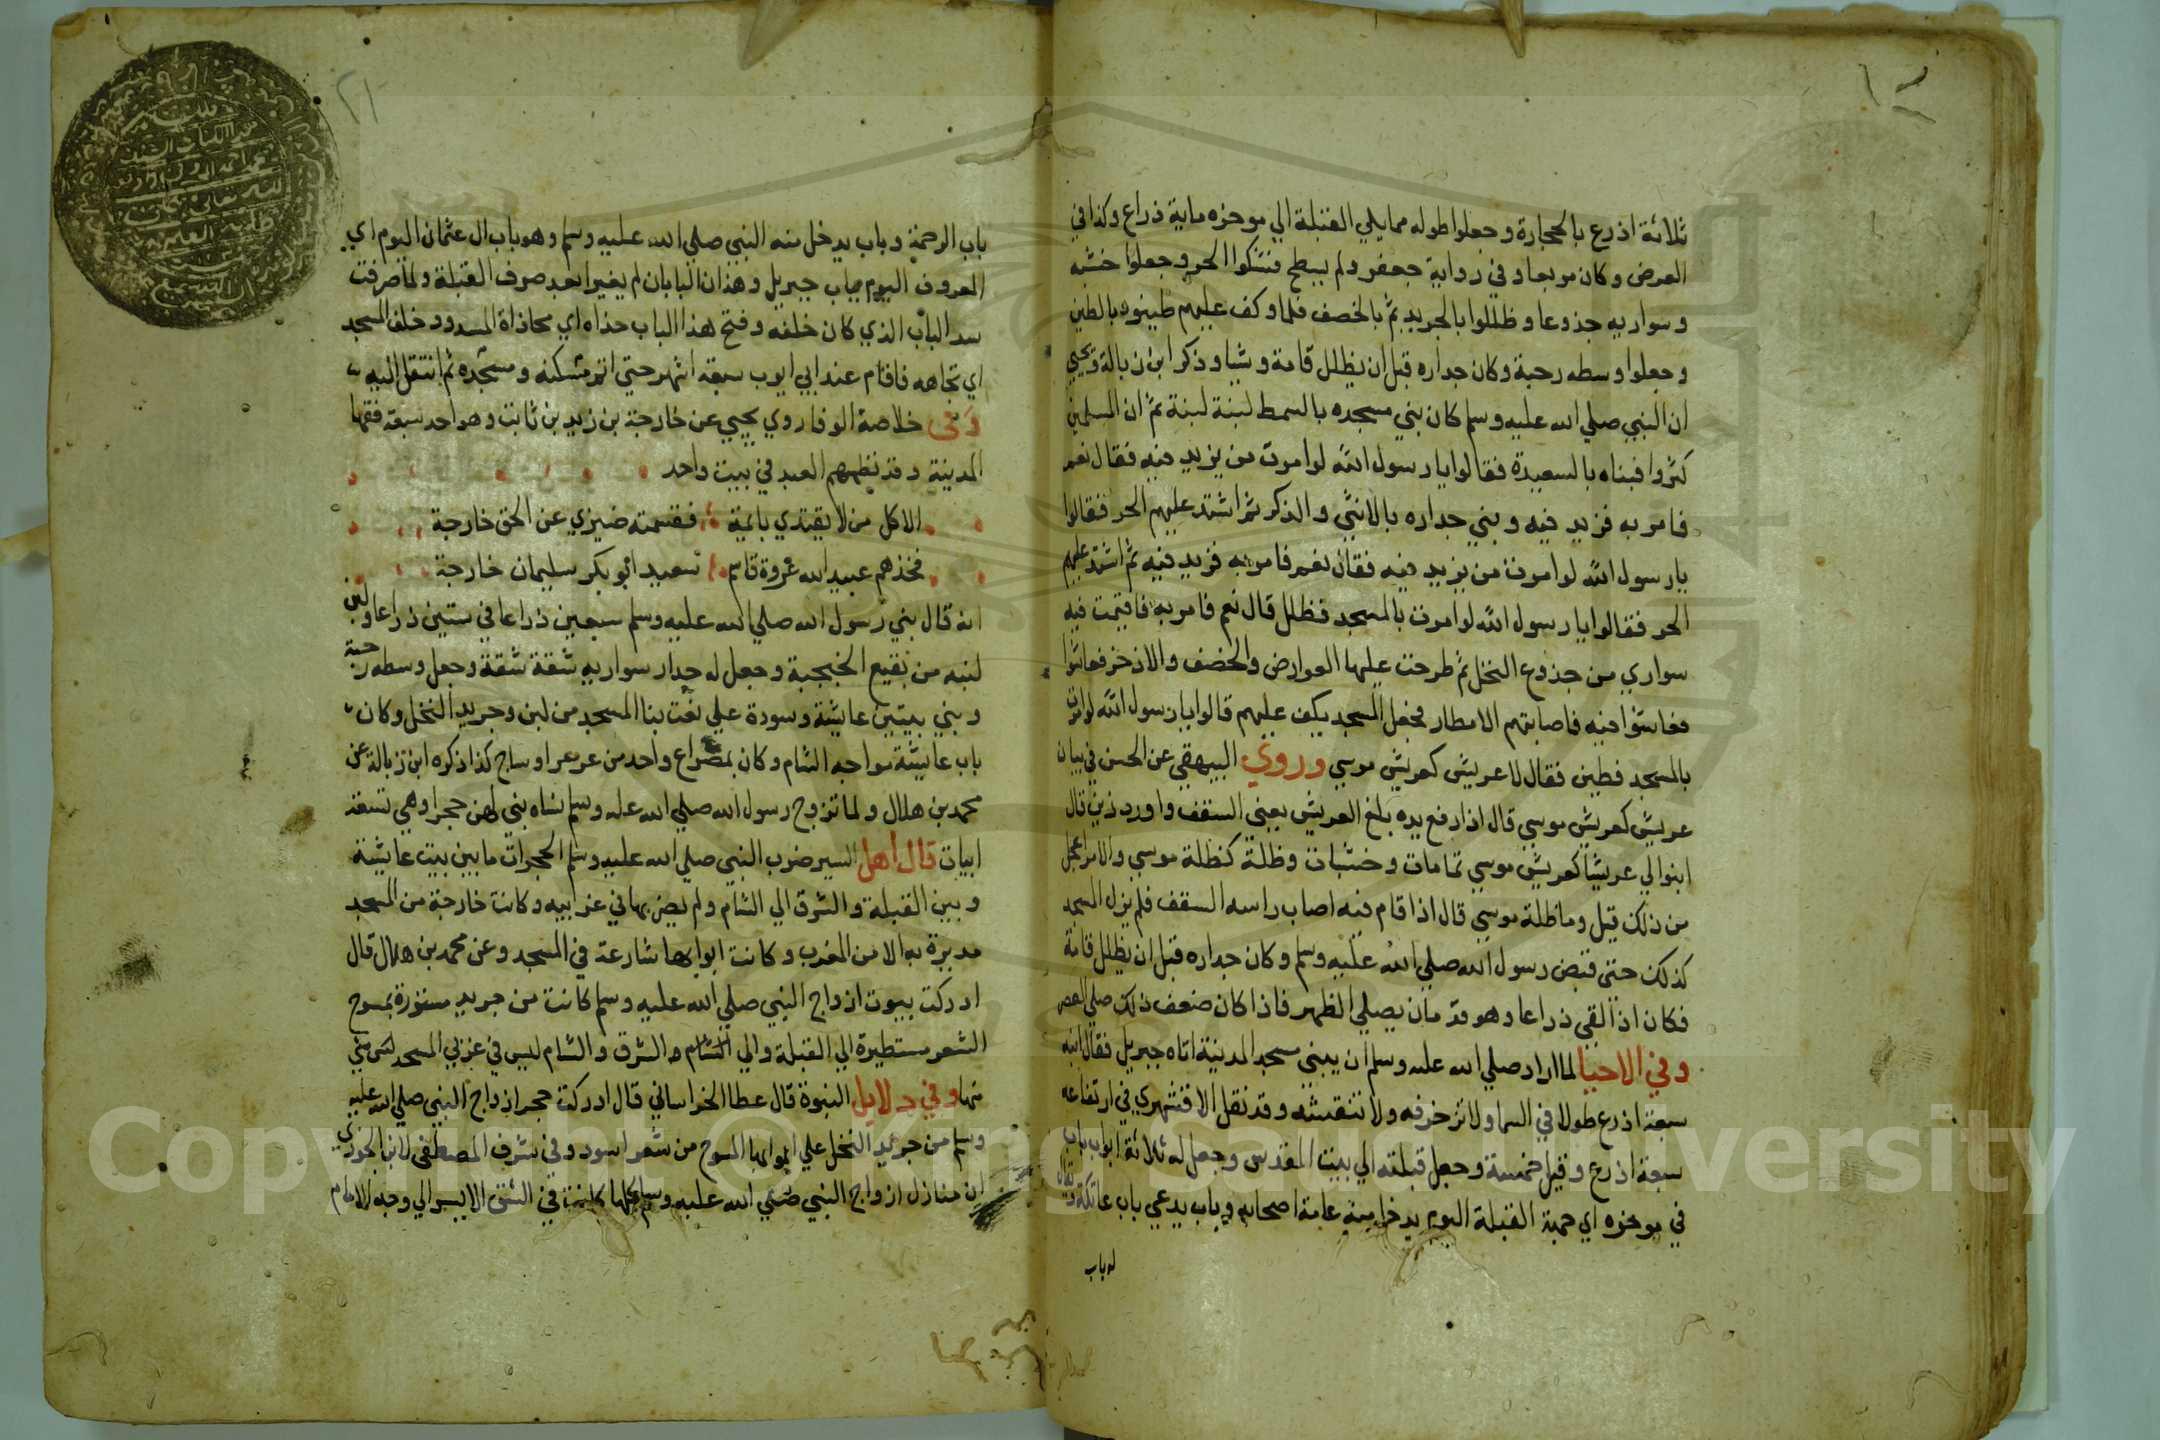 ثلاثة اذرع بالحجارة وجعلوا طوله ممايلي القبلة الي موخره ماية ذراع وكذا في
العرض وكان مربعا وفي رواية جعفر ولم يسطح فشكوا الحر وجعلوا خشبه
وسواريه جذوعا وظللوا بالجريد ثم بالخصف فلما وكف عليهم طينوه بالطين
وجعلوا وسطه رحبة وكان جداره قبل ان يظلل قامة وشيا وذكر ابن زبالة ويحيي
ان النبي صلي الله عليه وسلم كان بني مسجده بالسمط لبنة لبنة ثم ان المسلمين
كثروا فبناه بالسعيدة فقالوا يا رسول الله لو امرت من يزيد فيه فقال نعم
فامر به فزيد فيه وبني جداره بالانثي والذكر ثم اشتد عليهم الحر فقالوا
يا رسول الله لو امرت من يزيد فيه فقال نعم فامر به فزيد فيه ثم اشتد عليهم
الحر فقالوا يا رسول الله لو امرت بالمسجد فظلل قال نعم فامر به فاقيمت فيه
سواري من جذوع النخل ثم طرحت عليها العوارض والخصف والاذخر فعاشوا
فعاشوا فيه فاصابتهم الامطار فجعل المسجد يكف عليهم قالوا يا رسول الله لو امرت
بالمسجد فطين فقال لا عريش كعريش موسي وروي البيهقي عن الحسن في بيان
عريش كعريش موسي قال اذا رفع يده بلغ العريش يعني السقف واورد رزين قال
ابنوا لي عريشا كعريش موسي ثمامات وخشبات وظلة كظلة موسي والامر اعجل
من ذلك قيل وما ظلة موسي قال اذا قام فيه اصاب راسه السقف فلم يزل المسجد
كذلك حتي قبض رسول الله صلي الله عليه وسلم وكان جداره قبل ان يظلل قامة
فكان اذا لقي ذراعا وهو قدمان يصلي الظهر فاذا كان ضعف ذلك صلي العصر
وفي الاحيا لما اراد صلي الله عليه وسلم ان يبني مسجد المدينة اتاه جبريل فقال ابنه
سبعة اذرع طولا في السما ولا تزخرفه ولا تنقشه وقد نقل الاقشهري في ارتفاعه
سبعة اذرع وقيل خمسة وجعل قبلته الي بيت المقدس وجعل له ثلاثة ابواب باب
في موخره اي جهة القبلة اليوم يدخل منه عامة اصحابه وباب يدعي باب عاتكة ويقال
له باب
باب الرحمة وباب يدخل منه النبي صلي الله عليه وسلم وهو باب ال عثمان اليوم اي
المعروف اليوم بباب جبريل وهذان البابان لم يغيرا بعد صرف القبلة ولما صرفت
سد الباب الذي كان خلفه وفتح هذا الباب حذاه اي محاذاة المسدود خلف المسجد
اي تجاهه فاقام عند ابي ايوب سبعة اشهر حتي اتم مسكنه ومسجده ثم انتقل اليه
وفي خلاصة الوفا روي يحيي عن خارجة بن زيد بن ثابت وهو احد سبعة فقها
المدينة وقد نظمهم العبد في بيت واحد
الا كل من لا يقتدي بائمة فقسمته ضيزي عن الحق خارجة
فخذهم عبيد الله عروة قاسم سعيد ابو بكر سليمان خارجة
انه قال بني رسول الله صلي الله عليه وسلم سبعين ذراعا في ستين ذراعا ولبن
لبنه من بقيع الخبجبة وجعل له جدار سواريه شقة شقة وجعل وسطه رحبة
وبني بيتين عايشة وسودة علي نعت بنا المسجد من لبن وجريد النخل وكان
باب عايشة مواجه الشام وكان بمصراع واحد من عرعر او ساج كذا ذكره ابن زبالة عن
محمد بن هلال ولما تزوج رسول الله صلي الله عليه وسلم نساه بني لهن حجرا وهي تسعة
ابيات قال اهل السير ضرب النبي صلي الله عليه وسلم الحجرات ما بين بيت عايشة
وبين القبلة والشرق الي الشام ولم يضربها في غربيه وكانت خارجة من المسجد
مديرة به الا من المغرب وكانت ابوابها شارعة في المسجد وعن محمد بن هلال قال
ادركت بيوت ازواج النبي صلي الله عليه وسلم كانت من جريد مستورة بمسوح
الشعر مستطيرة الي القبلة والي الشام والشرق والشام ليس في غربي المسجد شي
منها وفي دلايل النبوة قال عطا الخراساني قال ادركت حجر ازواج النبي صلي الله عليه
وسلم من جريد النخل علي ابوابها المسوح من شعر اسود وفي شرف المصطفي لابن الجوزي
ان منازل ازواج النبي صلي الله عليه وسلم كلها كانت في الشق الايسر الي وجه الامام
Copyright © King Saud University